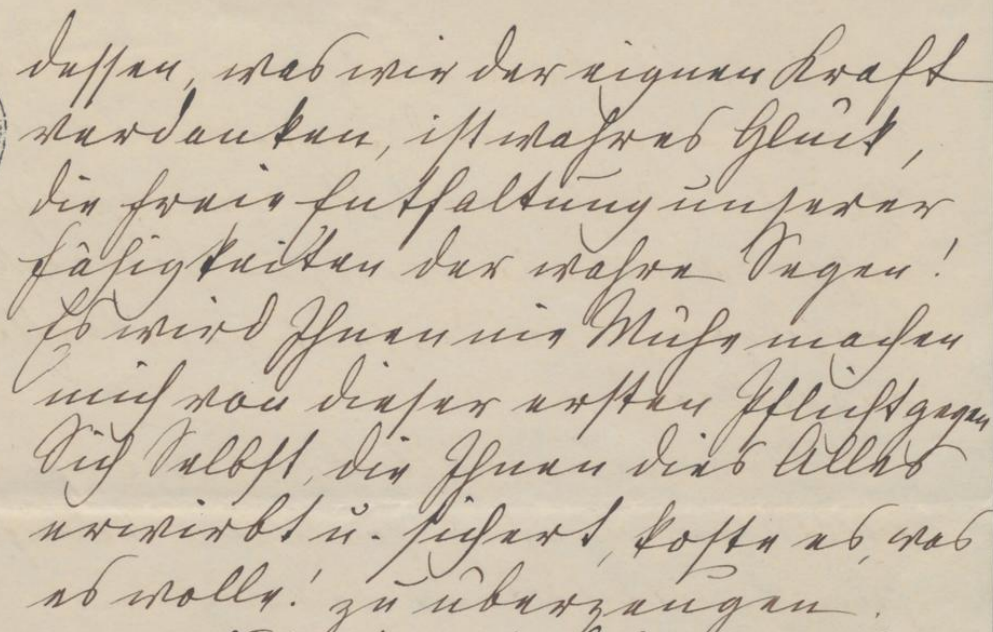 dessen, was wir der eignen Kraft
verdanken, ist wahres Glück,
die freie Entfaltung unserer
Fähigkeiten der wahre Segen!
Es wird Ihnen nie Mühe machen
mich von dieser ersten Pflicht gegen
Sich Selbst, die Ihnen dies Alles
erwirbt u. sichert, koste es, was
es wolle! zu überzeugen.